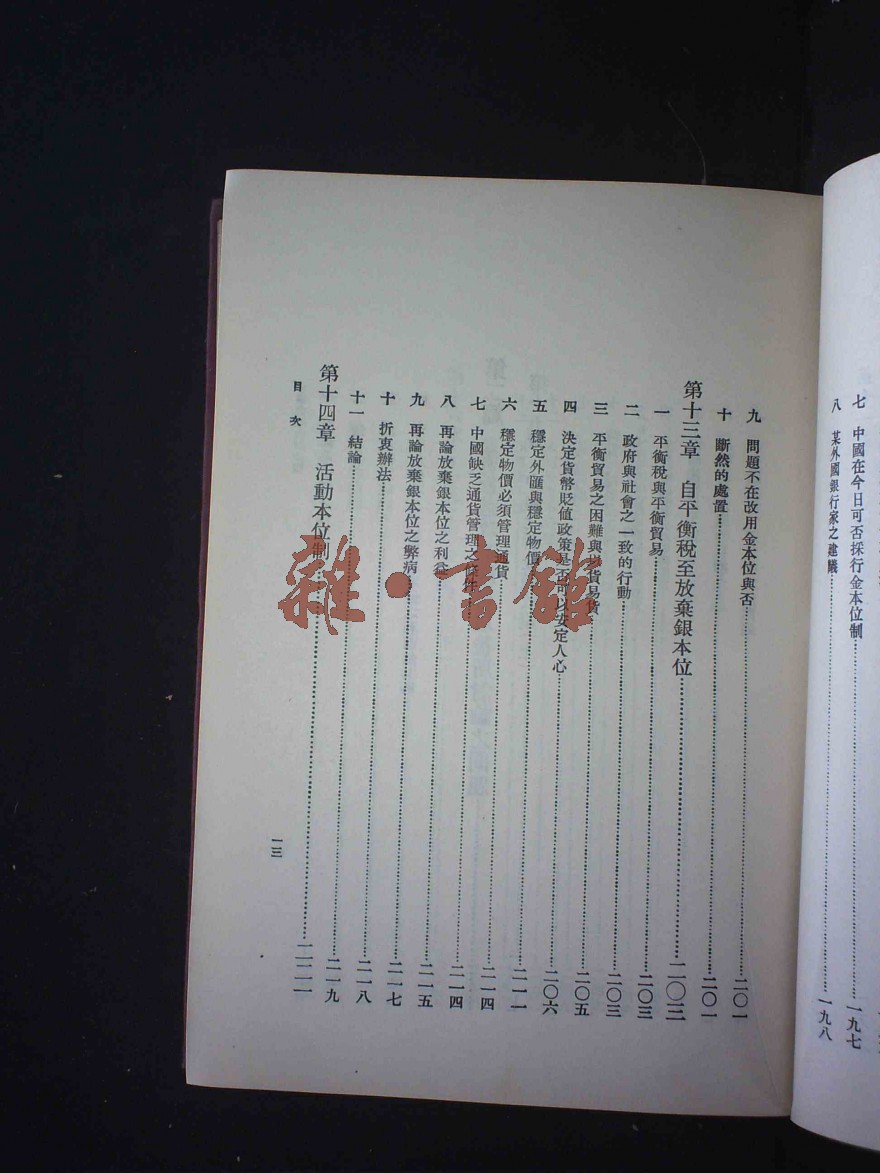 七　中國在今日可否採行金本位制……一九七
八　某外國銀行家之建議……一九八
九　問題不在改用金本位與否……二〇一
十　斷然的處置……二〇一
第十三章　自平衡稅至放棄銀本位……二〇三
一　平衡稅與平衡貿易……二〇三
二　政府與社會之一致的行動……二〇三
三　平衡貿易之困難與以貨易貨……二〇五
四　決定貨幣貶値政策是否可以安定人心……二〇六
五　穩定外匯與穩定物價……二一一
六　穩定物價必須管理通貨……二一四
七　中國缺乏通貨管理之條件……二一四
八　再論放棄銀本位之利益……二一五
九　再論放棄銀本位之弊病……二一七
十　折衷辦法……二一八
十一　結論……二一九
第十四章　活動本位制……二二一
目次
一三
雜·書舘